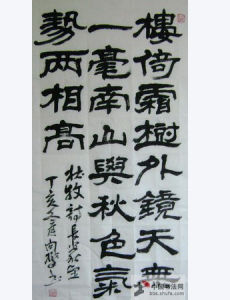 樓倚霜樹外鏡天無
一毫南山與秋色氣
勢兩相高
杜牧詩長安秋望
丁亥
中国书法网
bbs.shufa.com